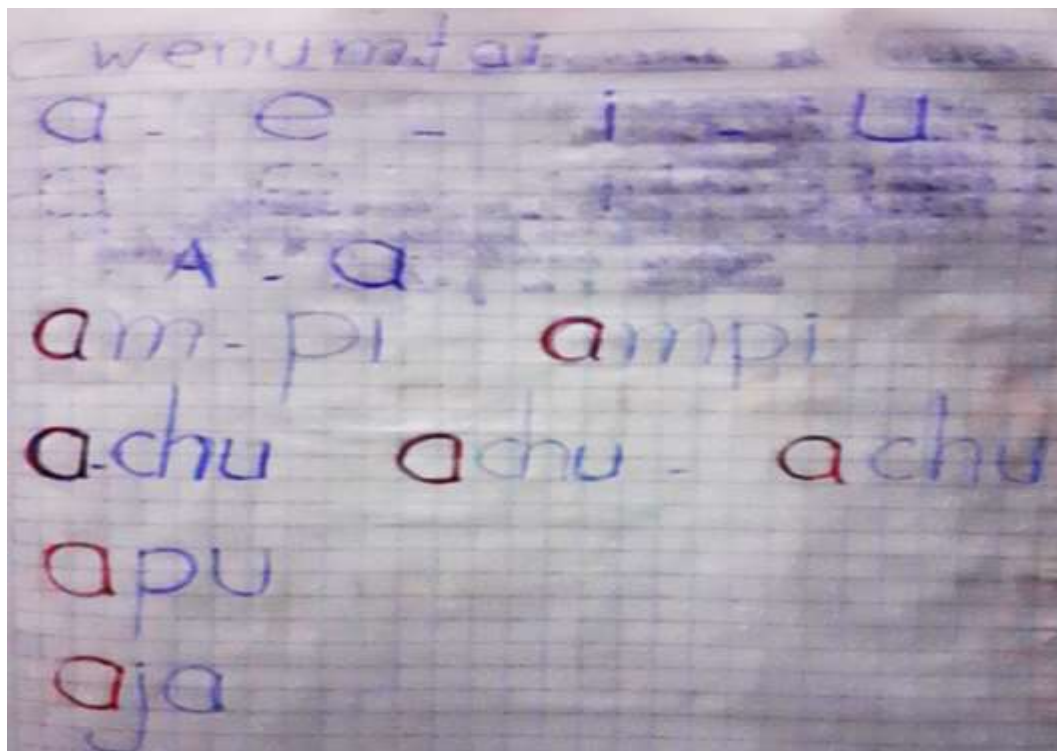 wenumtai
a - e - i - u -
a e i u
A - a
am - pi ampi
a-chu achu - achu
apu
aja